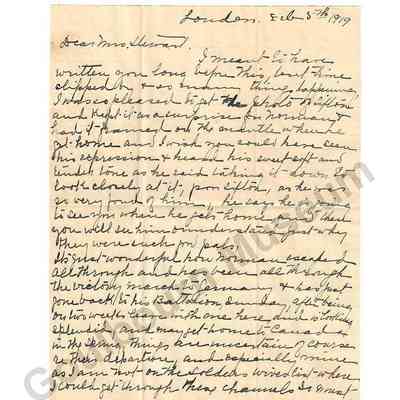 London. Feb 5th 1919
Dear Mrs. Stewart.
I meant to have
written you long before this, but time
slipped by & so many things happening,
I was so pleased to get the photo of Clifton
and kept it as a surprise for Norman &
had it framed on the mantle when he
got home and I wish you could have seen
his expression & heard his sweet soft and
tender tone as he said taking it down to
look closely at it, poor Clifton, as he was
so very fond of him, he says he is going
to see you when he gets home and then
you will see him & understand just why
they were such good pals.
Its just wonderful how Norman escaped
all through and has been all through
the victory march to Germany & has just
gone back to his Battalion Sunday after being
on two weeks leave with me here and is looking
splendid, we may get home to Canada
in the Spring. Things are uncertain of course
re their departure, and especially mine
as I am not on the soldiers wives list where
I could get through these channels I must
Guildhouse Museum